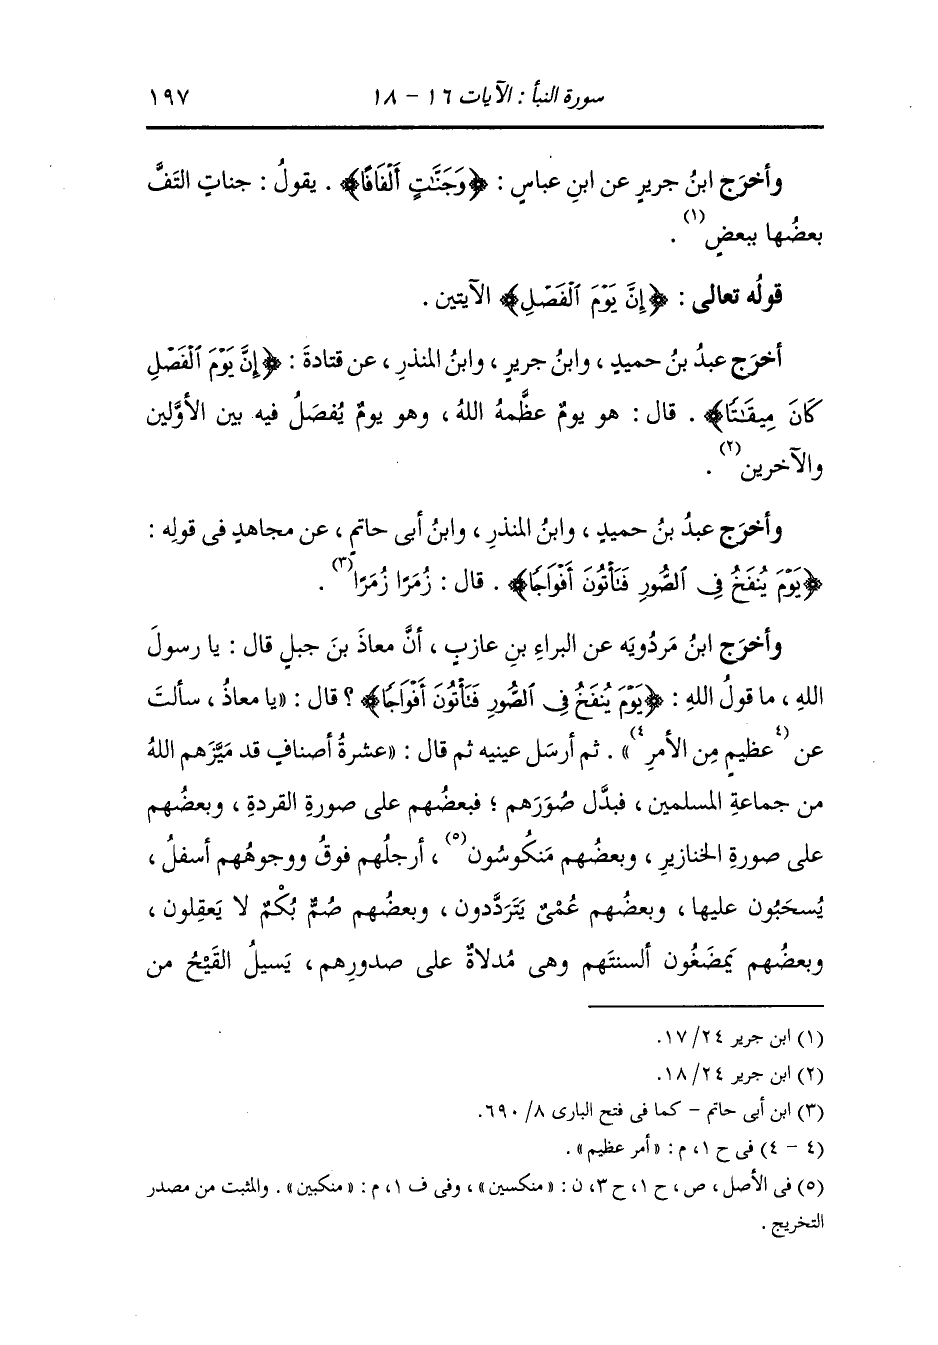 سورة النبأ : الآيات ١٦ - ١٨ ١٩٧
وأخرَج ابنُ جريرٍ عن ابنِ عباسٍ : ﴿وَجَنَّٰتٍ أَلْفَافًا﴾ . يقولُ : جناتٍ التَفَّ
بعضُها ببعضٍ(١) .
قولُه تعالى : ﴿إِنَّ يَوْمَ ٱلْفَصْلِ﴾ الآيتين .
أخرَج عبدُ بنُ حميدٍ ، وابنُ جريرٍ ، وابنُ المنذرِ ، عن قتادةَ : ﴿إِنَّ يَوْمَ ٱلْفَصْلِ
كَانَ مِيقَٰتًا﴾ . قال : هو يومٌ عظَّمهُ اللهُ ، وهو يومٌ يُفصَلُ فيه بين الأوَّلين
والآخرين(٢) .
وأخرَج عبدُ بنُ حميدٍ ، وابنُ المنذرِ ، وابنُ أبى حاتمٍ ، عن مجاهدٍ فى قولِه :
﴿يَوْمَ يُنفَخُ فِى ٱلصُّورِ فَتَأْتُونَ أَفْوَاجًا﴾ . قال : زُمَرًا زُمَرًا(٣) .
وأخرَج ابنُ مَردُويَه عن البراءِ بنِ عازبٍ ، أنَّ معاذَ بنَ جبلٍ قال : يا رسولَ
اللهِ ، ما قولُ اللهِ : ﴿يَوْمَ يُنفَخُ فِى ٱلصُّورِ فَتَأْتُونَ أَفْوَاجًا﴾ ؟ قال : «يا معاذُ ، سألتَ
عن (٤عظيمٍ مِن الأمرِ٤)» . ثم أرسَل عينيه ثم قال : «عشرةُ أصنافٍ قد مَيَّزهم اللهُ
من جماعةِ المسلمين ، فبدَّل صُوَرَهم ؛ فبعضُهم على صورةِ القردةِ ، وبعضُهم
على صورةِ الخنازيرِ ، وبعضُهم مَنكوسُون(٥) ، أرجلُهم فوقُ ووجوهُهم أسفلُ ،
يُسحَبُون عليها ، وبعضُهم عُمْىٌ يَتَردَّدون ، وبعضُهم صُمٌّ بُكْمٌ لا يَعقِلون ،
وبعضُهم يَمضَغُون ألسنتَهم وهى مُدلاةٌ على صدورِهم ، يَسيلُ القَيْحُ من
(١) ابن جرير ٢٤/ ١٧.
(٢) ابن جرير ٢٤/ ١٨.
(٣) ابن أبى حاتم - كما فى فتح البارى ٨/ ٦٩٠.
(٤ - ٤) فى ح ١، م : «أمر عظيم» .
(٥) فى الأصل ، ص ، ح ١، ح ٣، ن : «منكسين» ، وفى ف ١، م : «منكبين» . والمثبت من مصدر
التخريج .